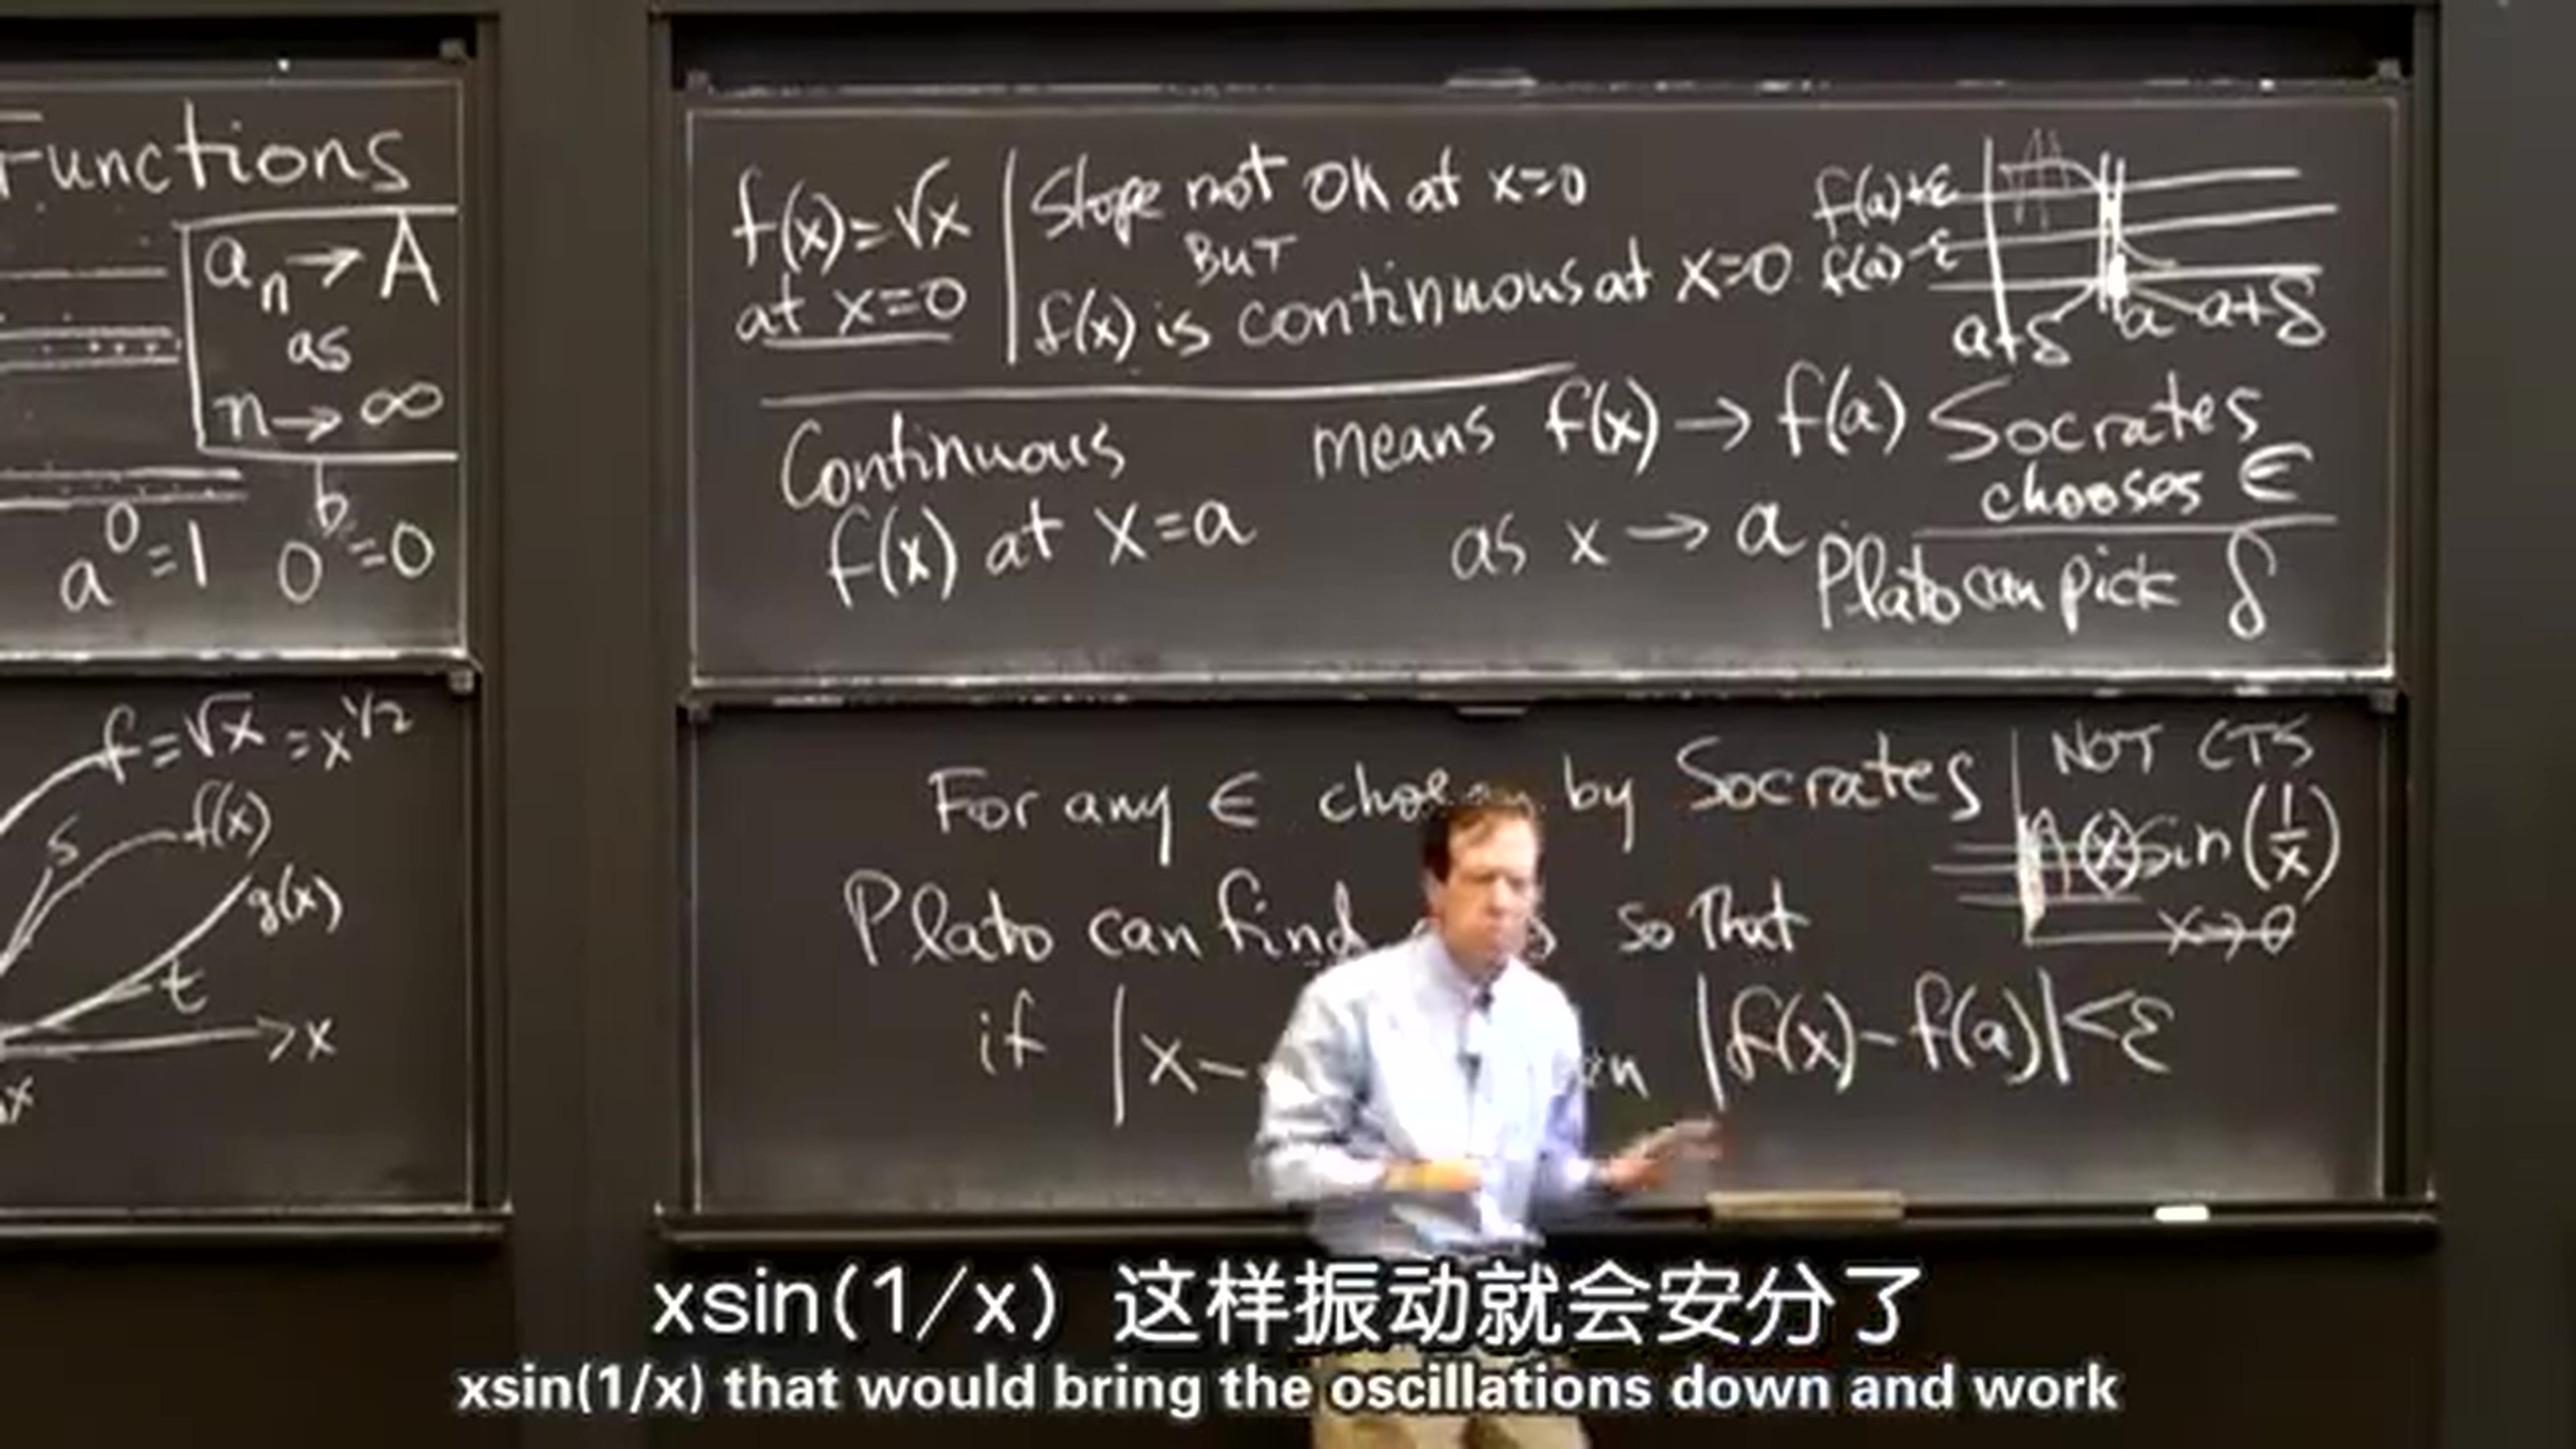 Functions
aₙ → A
as
n → ∞
a⁰ = 1 0ᵇ = 0
f = √x = x^1/2
s
f(x)
g(x)
t
x
x
f(x) = √x
at x=0
Slope not OK at x=0
BUT
f(x) is continuous at x=0
f(a)+ε
f(a)-ε
a+δ a a+δ
Continuous means f(x) → f(a)
f(x) at x=a as x → a
Socrates
chooses ϵ
Plato can pick δ
For any ϵ by Socrates
Plato can find so that
if |x- |f(x)-f(a)|<ε
NOT CTS
(x) sin(1/x)
x→0
xsin(1/x) 这样振动就会安分了
xsin(1/x) that would bring the oscillations down and work